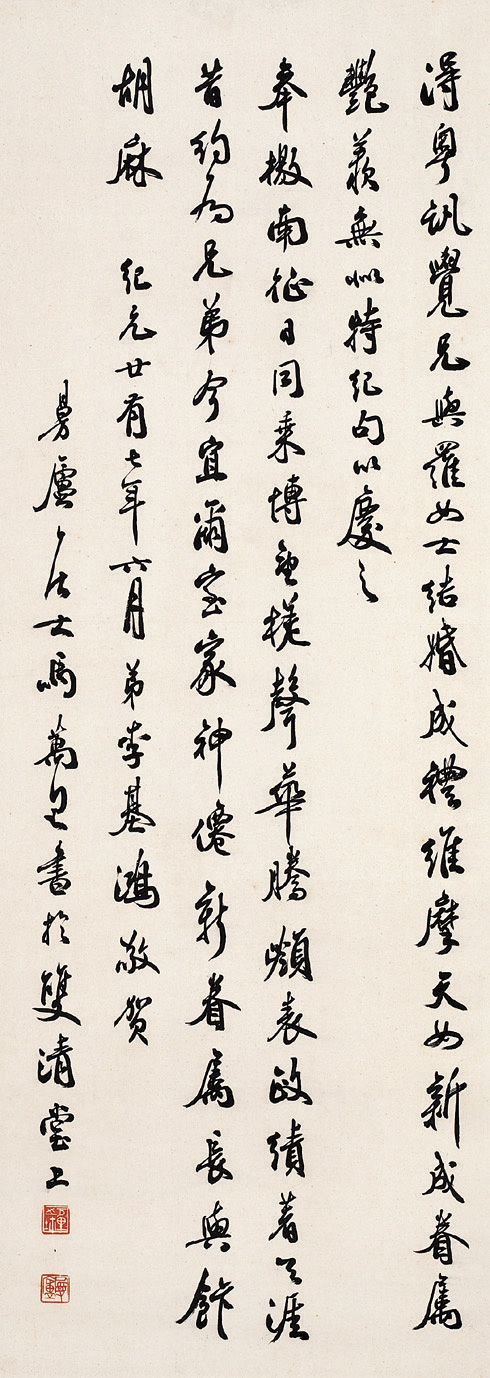 得粤訊覺兄與羅女士結婚成禮維摩天女新成眷屬
艷羨無似特紀句以慶之
奉檄南征日同乘博望槎聲華騰嶺表政績著天涯
昔約為兄弟今宜爾室家神僊新眷屬長與飯
胡麻 紀元廿有七年六月弟李基鴻敬賀
曼廬居士馬萬里書於雙清堂上